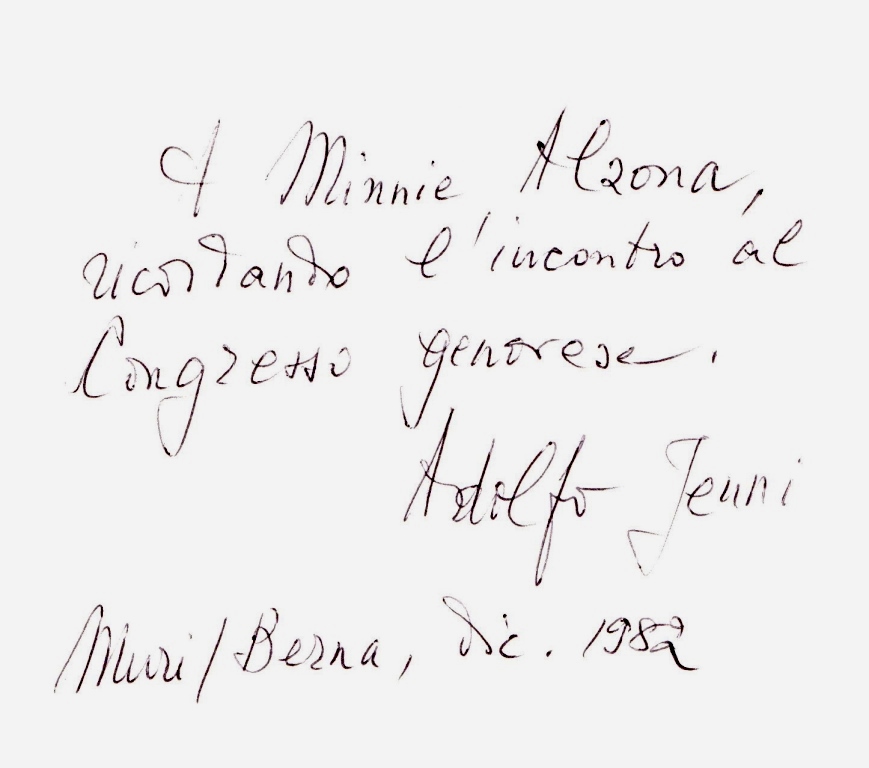 A Minnie Alzona,
ricordando l'incontro al
Congresso genovese.
Adolfo Jenni
Muri/Berna, dic. 1982